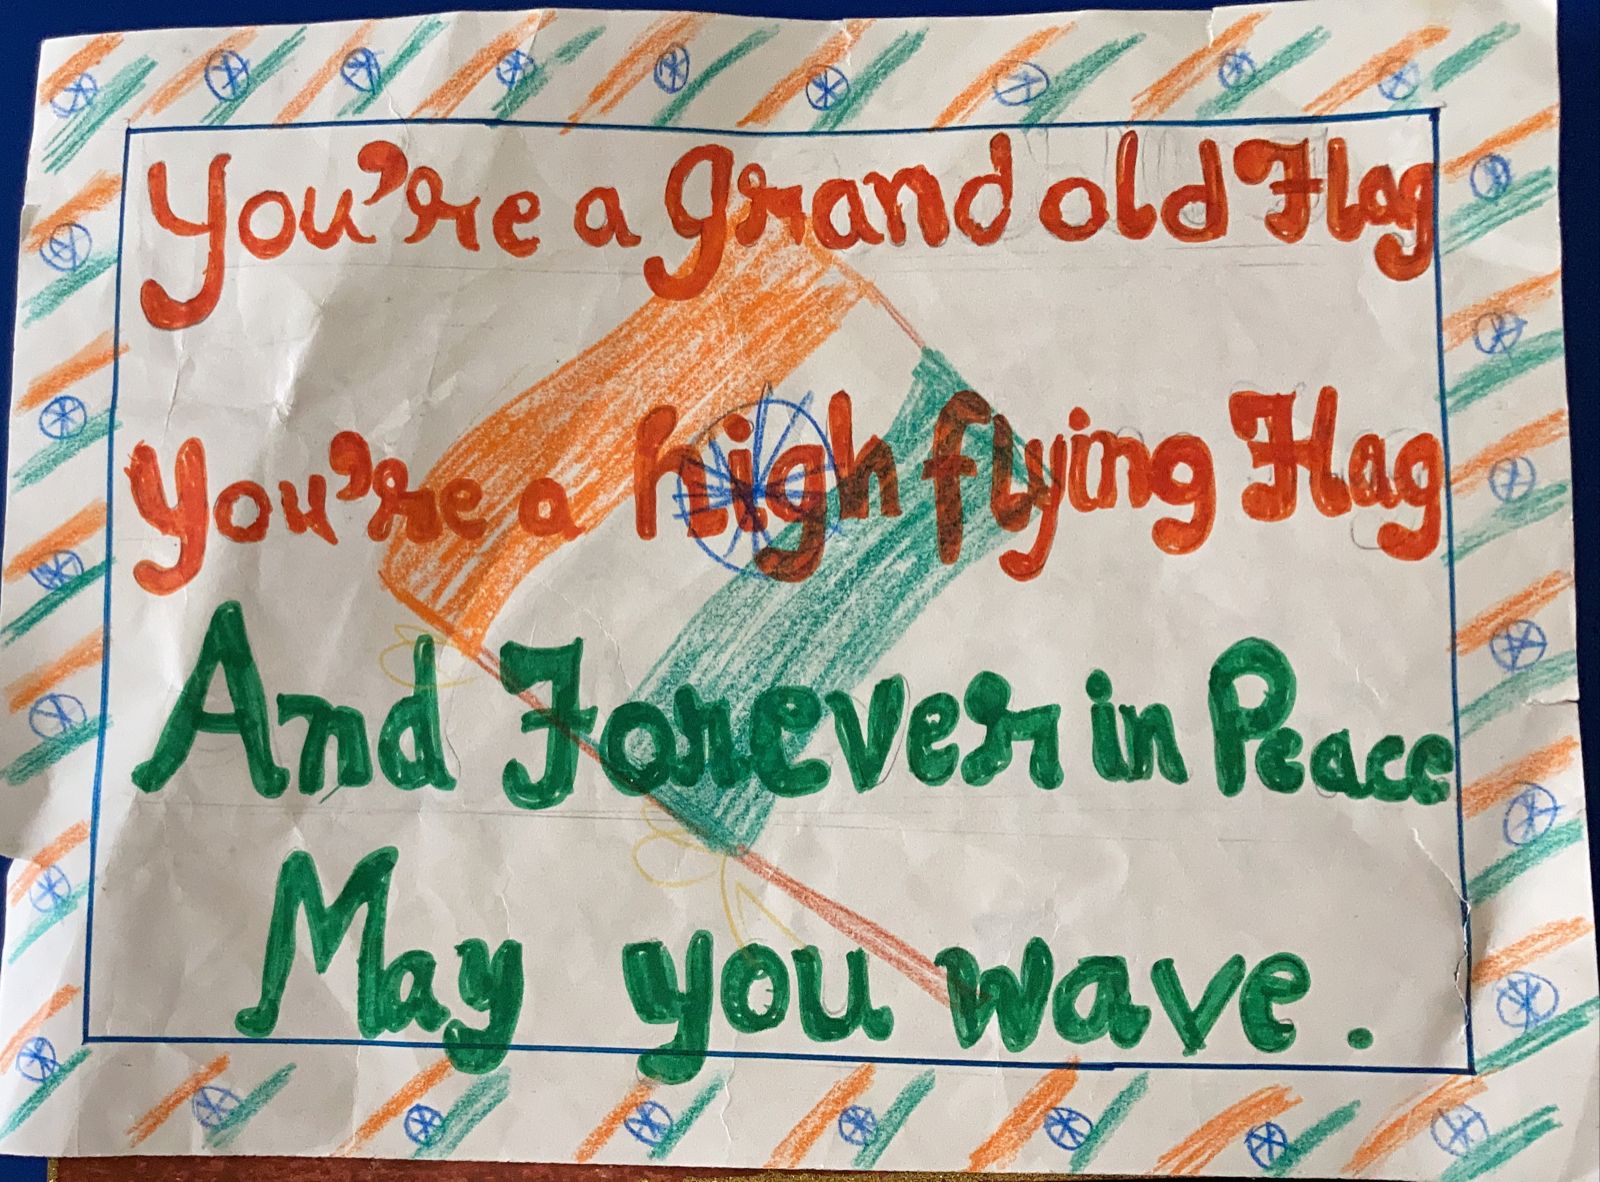 You're a grand old Flag
You're a high flying Flag
And Forever in Peace
May you wave.